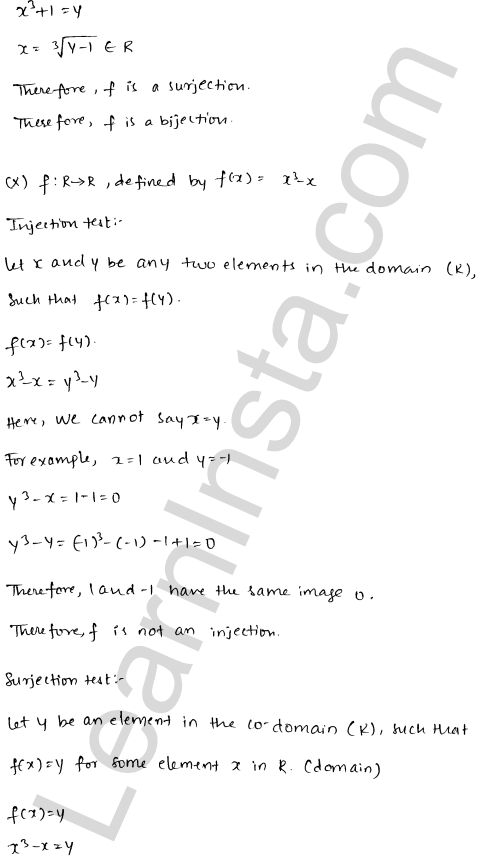 x³+1 = y
x = ∛y-1 ∈ R
Therefore, f is a surjection.
Therefore, f is a bijection.
(x) f: R→R, defined by f(x) = x³-x
Injection test:-
Let x and y be any two elements in the domain (R),
such that f(x) = f(y).
f(x) = f(y).
x³-x = y³-y
Here, we cannot say x=y.
For example, x=1 and y=-1
y³-x = 1-1=0
y³-y = (-1)³-(-1) -1+1=0
Therefore, 1 and -1 have the same image 0.
Therefore, f is not an injection.
Surjection test:-
Let y be an element in the co-domain (R), such that
f(x)=y for some element x in R. (domain)
f(x)=y
x³-x=y
LearnInsta.com